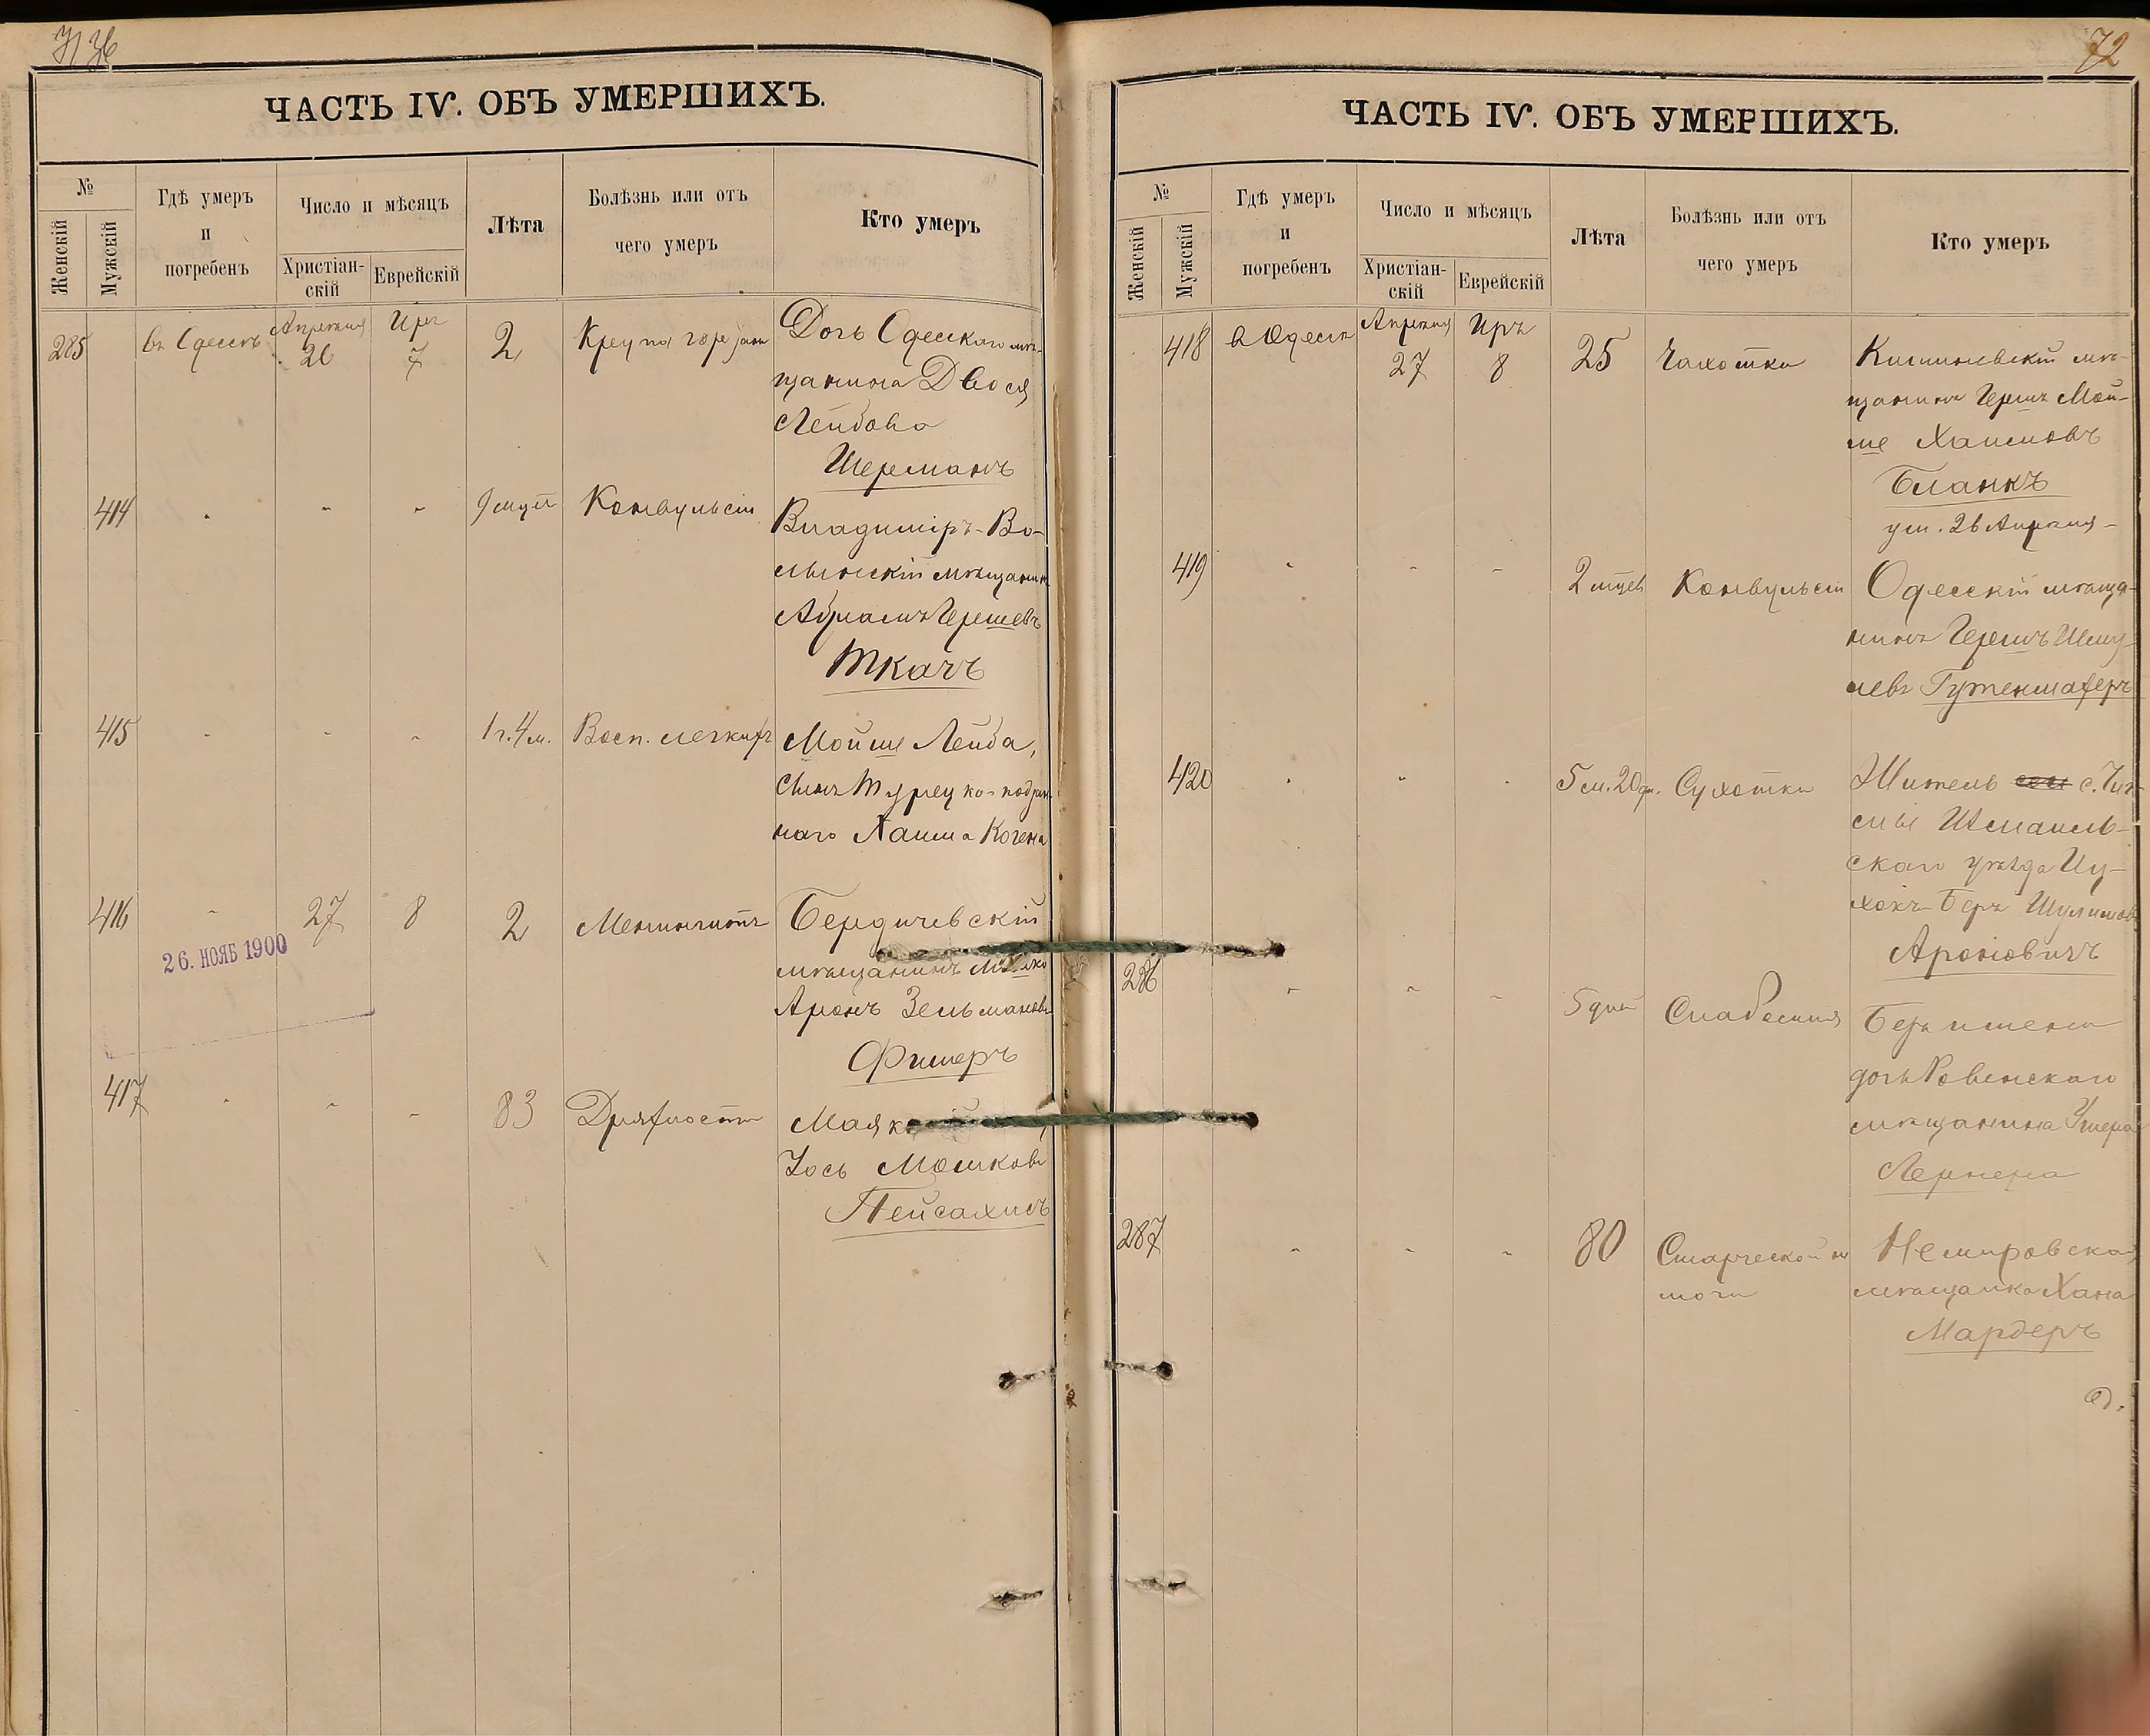 72
ЧАСТЬ IV. ОБЪ УМЕРШИХЪ.
№
Женскій
Мужскій
Гдѣ умеръ
и
погребенъ
Число и мѣсяцъ
Христіан-
скій
Еврейскій
Лѣта
Болѣзнь или отъ
чего умеръ
Кто умеръ
285
въ Одессѣ
Апрѣля
26
Иръ
7
2
Крупа
Дочь Одесскаго мѣ-
щанина Двося
Лейбова
Шерманъ
414
9 мцъ
Конвульсіи
Владиміръ-Во-
лынскій мѣщанинъ
Абрамъ Гершевъ
Ткачъ
415
1 г. 4 м.
Восп. легкихъ
Мойше Лейба,
сынъ Турецко-поддан
наго Хаима Когена
416
27
8
2
Менингитъ
Бердичевскій
мѣщанинъ
Аронъ Зельмановъ
Фишеръ
26. НОЯБ 1900
417
83
Дряхлость
Маяк
Іось Мошковъ
Пейсахисъ
ЧАСТЬ IV. ОБЪ УМЕРШИХЪ.
№
Женскій
Мужскій
Гдѣ умеръ
и
погребенъ
Число и мѣсяцъ
Христіан-
скій
Еврейскій
Лѣта
Болѣзнь или отъ
чего умеръ
Кто умеръ
418
в Одессѣ
Апрѣля
27
Иръ
8
25
Чахотка
Кишиневскій мѣ-
щанинъ Гершъ Мой-
ше Хаимовъ
Бланкъ
ум. 26 Апрѣля
419
2 мцев
Конвульсіи
Одесскій мѣща-
нинъ Гершъ Шму-
левъ Гутеншаферъ
420
5 м. 20 дн.
Сухотка
Житель с.
Измаиль-
скаго уѣзда Иц-
хокъ Беръ Шулимовъ
Ароновичъ
286
5 дней
Слабосилія
Безъ имени
дочь Ровенскаго
мѣщанина Ушера
Лернера
287
80
Старческой не
мочи
Немировская
мѣщанка Хана
Мардеръ